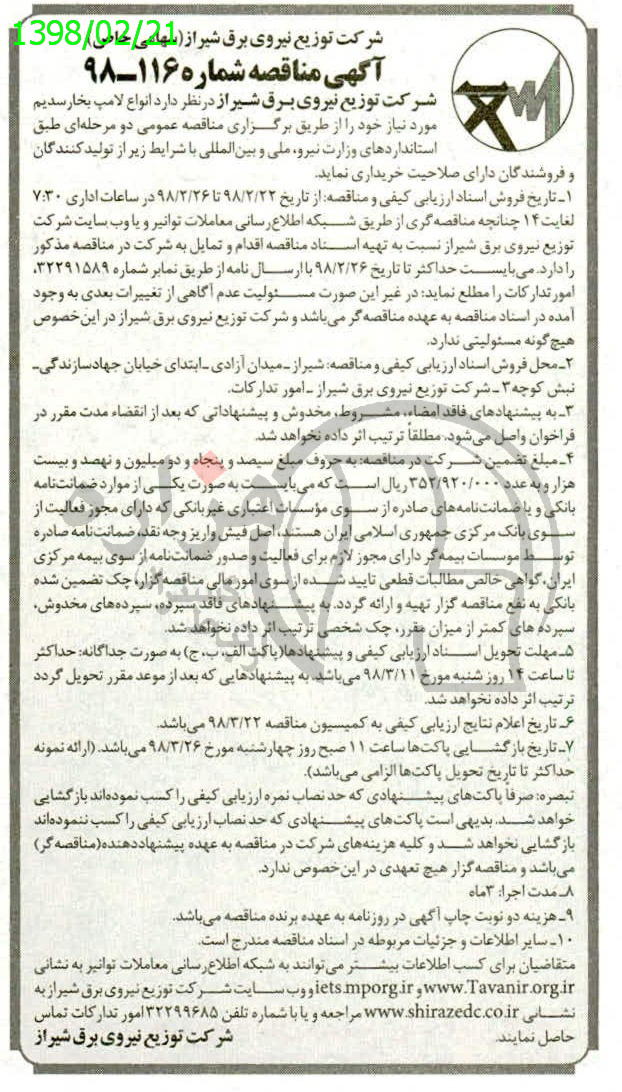 1398/02/21
شرکت توزیع نیروی برق شیراز(سهامی خاص)
آگهی مناقصه شماره ۱۱۶ــ۹۸
شرکت توزیع نیروی برق شیراز در نظر دارد انواع لامپ بخار سدیم
مورد نیاز خود را از طریق برگزاری مناقصه عمومی دو مرحله‌ای طبق
استانداردهای وزارت نیرو، ملی و بین‌المللی با شرایط زیر از تولیدکنندگان
و فروشندگان دارای صلاحیت خریداری نماید.
۱ـ تاریخ فروش اسناد ارزیابی کیفی و مناقصه: از تاریخ ۹۸/۲/۲۲ تا ۹۸/۲/۲۶ در ساعات اداری ۷:۳۰
لغایت ۱۴ چنانچه مناقصه‌گری از طریق شبکه اطلاع‌رسانی معاملات توانیر و یا وب سایت شرکت
توزیع نیروی برق شیراز نسبت به تهیه اسناد مناقصه اقدام و تمایل به شرکت در مناقصه مذکور
را دارد. می‌بایست حداکثر تا تاریخ ۹۸/۲/۲۶ با ارسال نامه از طریق نمابر شماره ۳۲۲۹۱۵۸۹،
امور تدارکات را مطلع نماید: در غیر این صورت مسئولیت عدم آگاهی از تغییرات بعدی به وجود
آمده در اسناد مناقصه به عهده مناقصه‌گر می‌باشد و شرکت توزیع نیروی برق شیراز در این خصوص
هیچ‌گونه مسئولیتی ندارد.
۲ـ محل فروش اسناد ارزیابی کیفی و مناقصه: شیراز ـ میدان آزادی ـ ابتدای خیابان جهادسازندگی ـ
نبش کوچه ۳ ـ شرکت توزیع نیروی برق شیراز ـ امور تدارکات.
۳ـ به پیشنهادهای فاقد امضاء، مشروط، مخدوش و پیشنهاداتی که بعد از انقضاء مدت مقرر در
فراخوان واصل می‌شود، مطلقاً ترتیب اثر داده نخواهد شد.
۴ـ مبلغ تضمین شرکت در مناقصه: به حروف مبلغ سیصد و پنجاه و دو میلیون و نهصد و بیست
هزار و به عدد ۳۵۲/۹۲۰/۰۰۰ ریال است که می‌بایست به صورت یکی از موارد ضمانت‌نامه
بانکی و یا ضمانت‌نامه‌های صادره از سوی مؤسسات اعتباری غیربانکی که دارای مجوز فعالیت از
سوی بانک مرکزی جمهوری اسلامی ایران هستند، اصل فیش واریز وجه نقد، ضمانت‌نامه صادره
توسط موسسات بیمه‌گر دارای مجوز لازم برای فعالیت و صدور ضمانت‌نامه از سوی بیمه مرکزی
ایران، گواهی خالص مطالبات قطعی تایید شده از سوی امور مالی مناقصه‌گزار، چک تضمین شده
بانکی به نفع مناقصه گزار تهیه و ارائه گردد. به پیشنهادهای فاقد سپرده، سپرده‌های مخدوش،
سپرده های کمتر از میزان مقرر، چک شخصی ترتیب اثر داده نخواهد شد.
۵ـ مهلت تحویل اسناد ارزیابی کیفی و پیشنهادها(پاکت الف، ب، ج) به صورت جداگانه: حداکثر
تا ساعت ۱۴ روز شنبه مورخ ۹۸/۳/۱۱ می‌باشد. به پیشنهادهایی که بعد از موعد مقرر تحویل گردد
ترتیب اثر داده نخواهد شد.
۶ـ تاریخ اعلام نتایج ارزیابی کیفی به کمیسیون مناقصه ۹۸/۳/۲۲ می‌باشد.
۷ـ تاریخ بازگشایی پاکت‌ها ساعت ۱۱ صبح روز چهارشنبه مورخ ۹۸/۳/۲۶ می‌باشد. (ارائه نمونه
حداکثر تا تاریخ تحویل پاکت‌ها الزامی می‌باشد).
تبصره: صرفاً پاکت‌های پیشنهادی که حد نصاب نمره ارزیابی کیفی را کسب نموده‌اند بازگشایی
خواهد شد. بدیهی است پاکت‌های پیشنهادی که حد نصاب ارزیابی کیفی را کسب ننموده‌اند
بازگشایی نخواهد شد و کلیه هزینه‌های شرکت در مناقصه به عهده پیشنهاددهنده(مناقصه‌گر)
می‌باشد و مناقصه‌گزار هیچ تعهدی در این خصوص ندارد.
۸ـ مدت اجرا: ۳ماه
۹ـ هزینه دو نوبت چاپ آگهی در روزنامه به عهده برنده مناقصه می‌باشد.
۱۰ـ سایر اطلاعات و جزئیات مربوطه در اسناد مناقصه مندرج است.
متقاضیان برای کسب اطلاعات بیشتر می‌توانند به شبکه اطلاع‌رسانی معاملات توانیر به نشانی
www.Tavanir.org.ir و iets.mporg.ir و وب سایت شرکت توزیع نیروی برق شیراز به
نشانی www.shirazedc.co.ir مراجعه و یا با شماره تلفن ۳۲۲۹۹۶۸۵ امور تدارکات تماس
حاصل نمایند.
شرکت توزیع نیروی برق شیراز